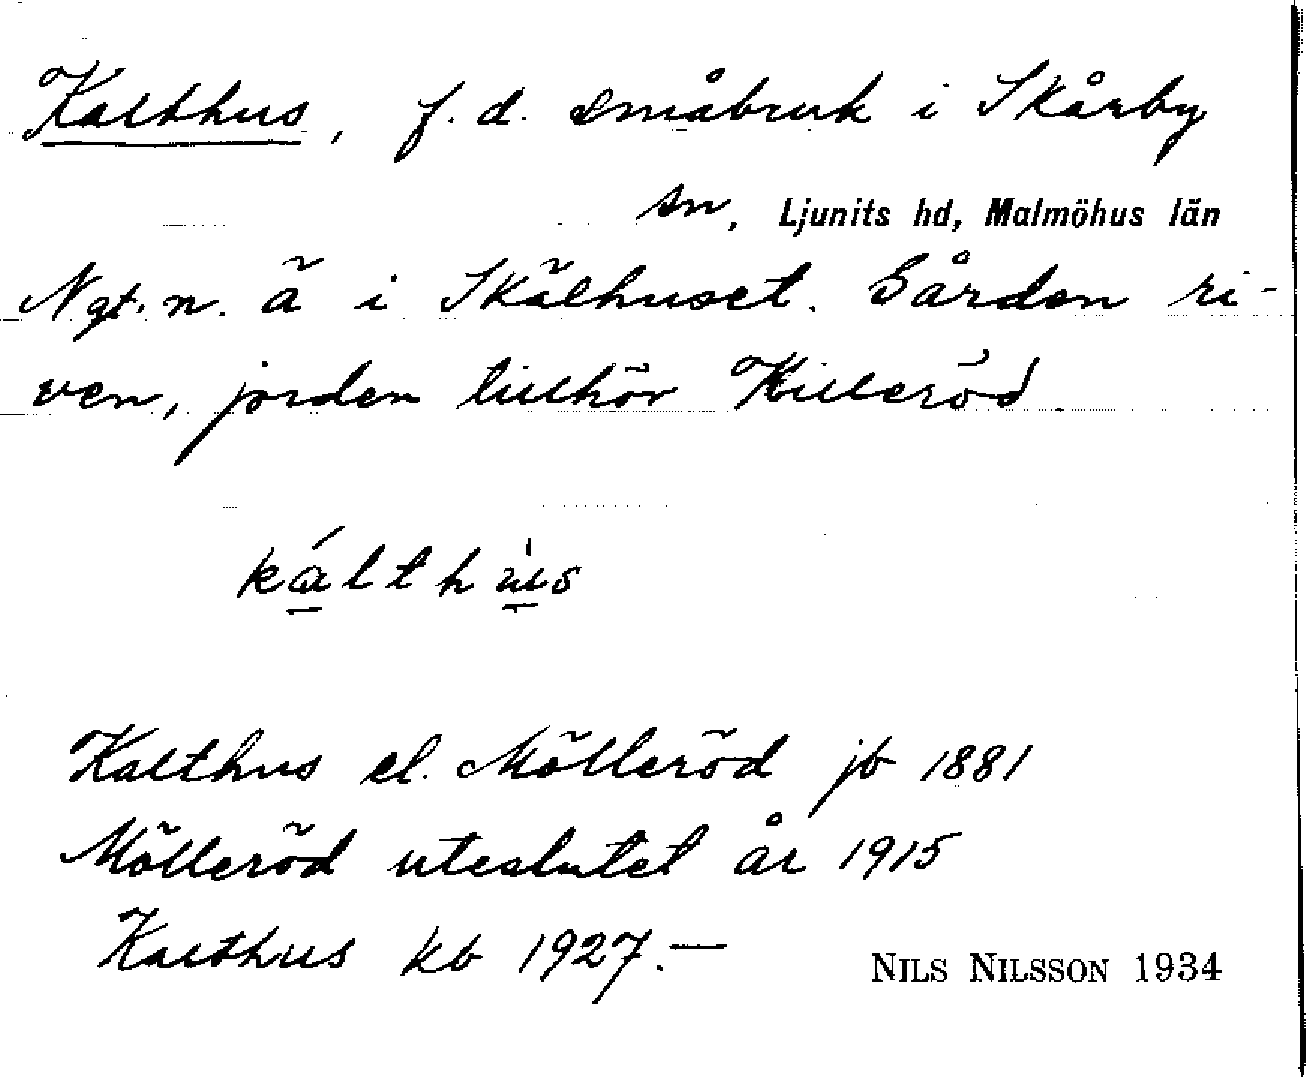 Kalthus, f.d. småbruk i Skårby
sn, Ljunits hd, Malmöhus län
Ngt. n. ä i Skälhuset. Gården ri-
ven, jorden tillhör Killeröd.
kálthus
Kalthus el. Mölleröd jb 1881
Mölleröd uteslutet år 1915
Kalthus kb 1927.—
NILS NILSSON 1934